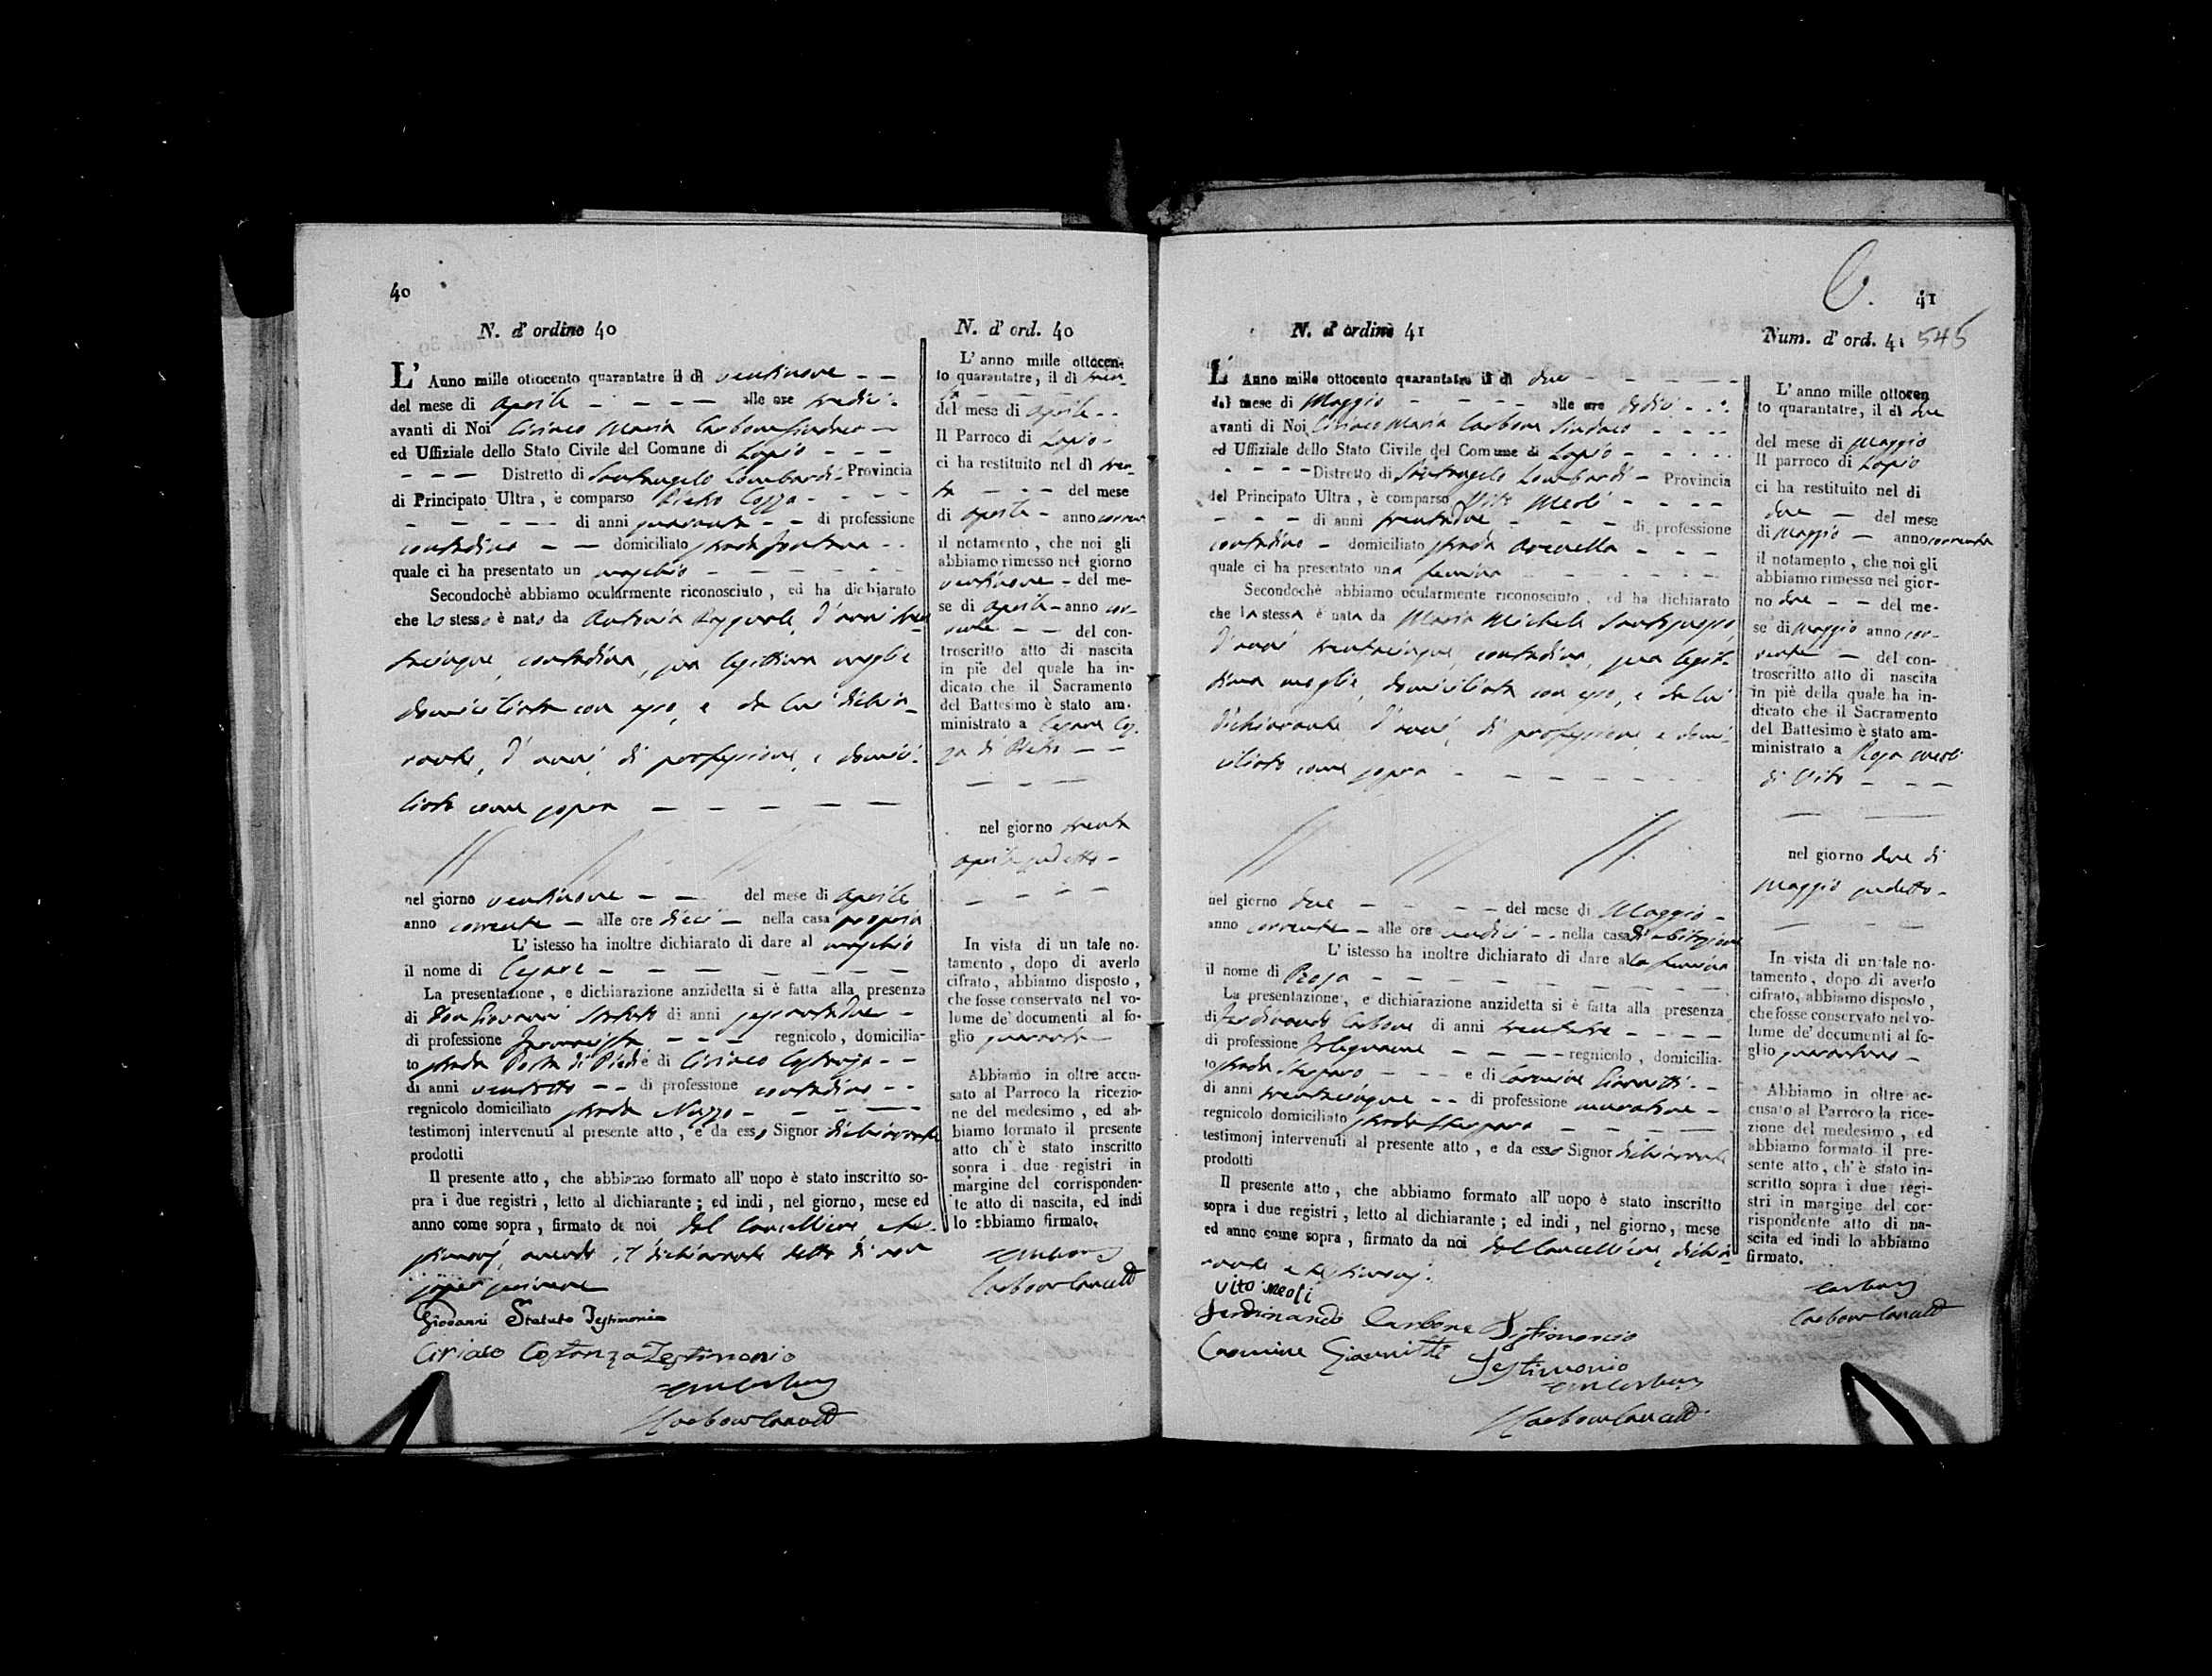 40
N. d' ordine 40
L' Anno mille ottocento quarantatre il dì ventinove
del mese di Aprile alle ore tredici
avanti di Noi Ciriaco Maria Carbone Sindaco
ed Uffiziale dello Stato Civile del Comune di Lapio
Distretto di Santangelo Lombardi Provincia
di Principato Ultra, è comparso Pietro Cozza
di anni quaranta di professione
contadino domiciliato strada fontana
quale ci ha presentato un maschio
Secondochè abbiamo ocularmente riconosciuto, ed ha dichiarato
che lo stesso è nato da Antonia d'anni tren
tacinque, contadina, sua legittima moglie
domiciliata con esso, e da lui dichia-
rante, d'anni, di professione, e domici-
liato come sopra
nel giorno ventinove del mese di Aprile
anno corrente alle ore dieci nella casa propria
L' istesso ha inoltre dichiarato di dare al maschio
il nome di Cesare
La presentazione, e dichiarazione anzidetta si è fatta alla presenza
di Don Giovanni Statuto di anni sessantadue
di professione regnicolo, domicilia-
to strada Porta di Piedi e di Ciriaco Costanza
di anni ventotto di professione contadino
regnicolo domiciliato strada Nuzzo
testimonj intervenuti al presente atto, e da esso Signor dichiarante
prodotti
Il presente atto, che abbiamo formato all' uopo è stato inscritto so-
pra i due registri, letto al dichiarante; ed indi, nel giorno, mese ed
anno come sopra, firmato da noi dal Cancelliere e te-
stimonj, avendo il dichiarante detto di non
saper scrivere
Giovanni Statuto Testimonio
Ciriaco Costanza Testimonio
N. d' ord. 40
L' anno mille ottocen-
to quarantatre, il dì tren-
ta
del mese di Aprile
Il Parroco di Lapio
ci ha restituito nel dì tren-
ta del mese
di Aprile anno corren
il notamento, che noi gli
abbiamo rimesso nel giorno
ventinove del me-
se di Aprile anno cor-
rente del con-
troscritto atto di nascita
in piè del quale ha in-
dicato che il Sacramento
del Battesimo è stato am-
ministrato a Cesare Coz-
za di Pietro
nel giorno trenta
Aprile sudetto
In vista di un tale no-
tamento, dopo di averlo
cifrato, abbiamo disposto,
che fosse conservato nel vo-
lume de' documenti al fo-
glio quaranta
Abbiamo in oltre accu-
sato al Parroco la ricezio-
ne del medesimo, ed ab-
biamo formato il presente
atto ch' è stato inscritto
sopra i due registri in
margine del corrisponden-
te atto di nascita, ed indi
lo abbiamo firmato.
41
N. d' ordine 41
L' Anno mille ottocento quarantatre il dì due
del mese di Maggio alle ore dodici
avanti di Noi Ciriaco Maria Carbone Sindaco
ed Uffiziale dello Stato Civile del Comune di Lapio
Distretto di Santangelo Lombardi Provincia
del Principato Ultra, è comparso Vito Meoli
di anni trentadue di professione
contadino domiciliato strada Arenella
quale ci ha presentato una femina
Secondochè abbiamo ocularmente riconosciuto, ed ha dichiarato
che la stessa è nata da Maria Michela
d'anni trentacinque, contadina, sua legit-
tima moglie, domiciliata con esso, e da lui
dichiarante d'anni, di professione, e domi-
ciliato come sopra
nel giorno due del mese di Maggio
anno corrente alle ore undici nella casa di abitazione
L' istesso ha inoltre dichiarato di dare alla femina
il nome di Rosa
La presentazione, e dichiarazione anzidetta si è fatta alla presenza
di Ferdinando Carbone di anni trentatre
di professione falegname regnicolo, domicilia-
to strada e di Carmine Giannitti
di anni trentacinque di professione muratore
regnicolo domiciliato strada
testimonj intervenuti al presente atto, e da esso Signor dichiarante
prodotti
Il presente atto, che abbiamo formato all' uopo è stato inscritto
sopra i due registri, letto al dichiarante; ed indi, nel giorno, mese
ed anno come sopra, firmato da noi dal Cancelliere, dichia-
rante e testimonj.
Vito Meoli
Ferdinando Carbone Testimonio
Carmine Giannitti Testimonio
Num. d' ord. 41 545
L' anno mille ottocen
to quarantatre, il dì due
del mese di Maggio
Il parroco di Lapio
ci ha restituito nel di
due del mese
di Maggio anno corrente
il notamento, che noi gli
abbiamo rimesso nel gior-
no due del me-
se di Maggio anno cor-
rente del con-
troscritto atto di nascita
in piè della quale ha in-
dicato che il Sacramento
del Battesimo è stato am-
ministrato a Rosa Meoli
di Vito
nel giorno due di
Maggio sudetto
In vista di un tale no-
tamento, dopo di averlo
cifrato, abbiamo disposto,
che fosse conservato nel vo-
lume de' documenti al fo-
glio quarantuno
Abbiamo in oltre ac-
cusato al Parroco la rice-
zione del medesimo, ed
abbiamo formato il pre-
sente atto, ch' è stato in-
scritto sopra i due regi-
stri in margine del cor-
rispondente atto di na-
scita ed indi lo abbiamo
firmato.